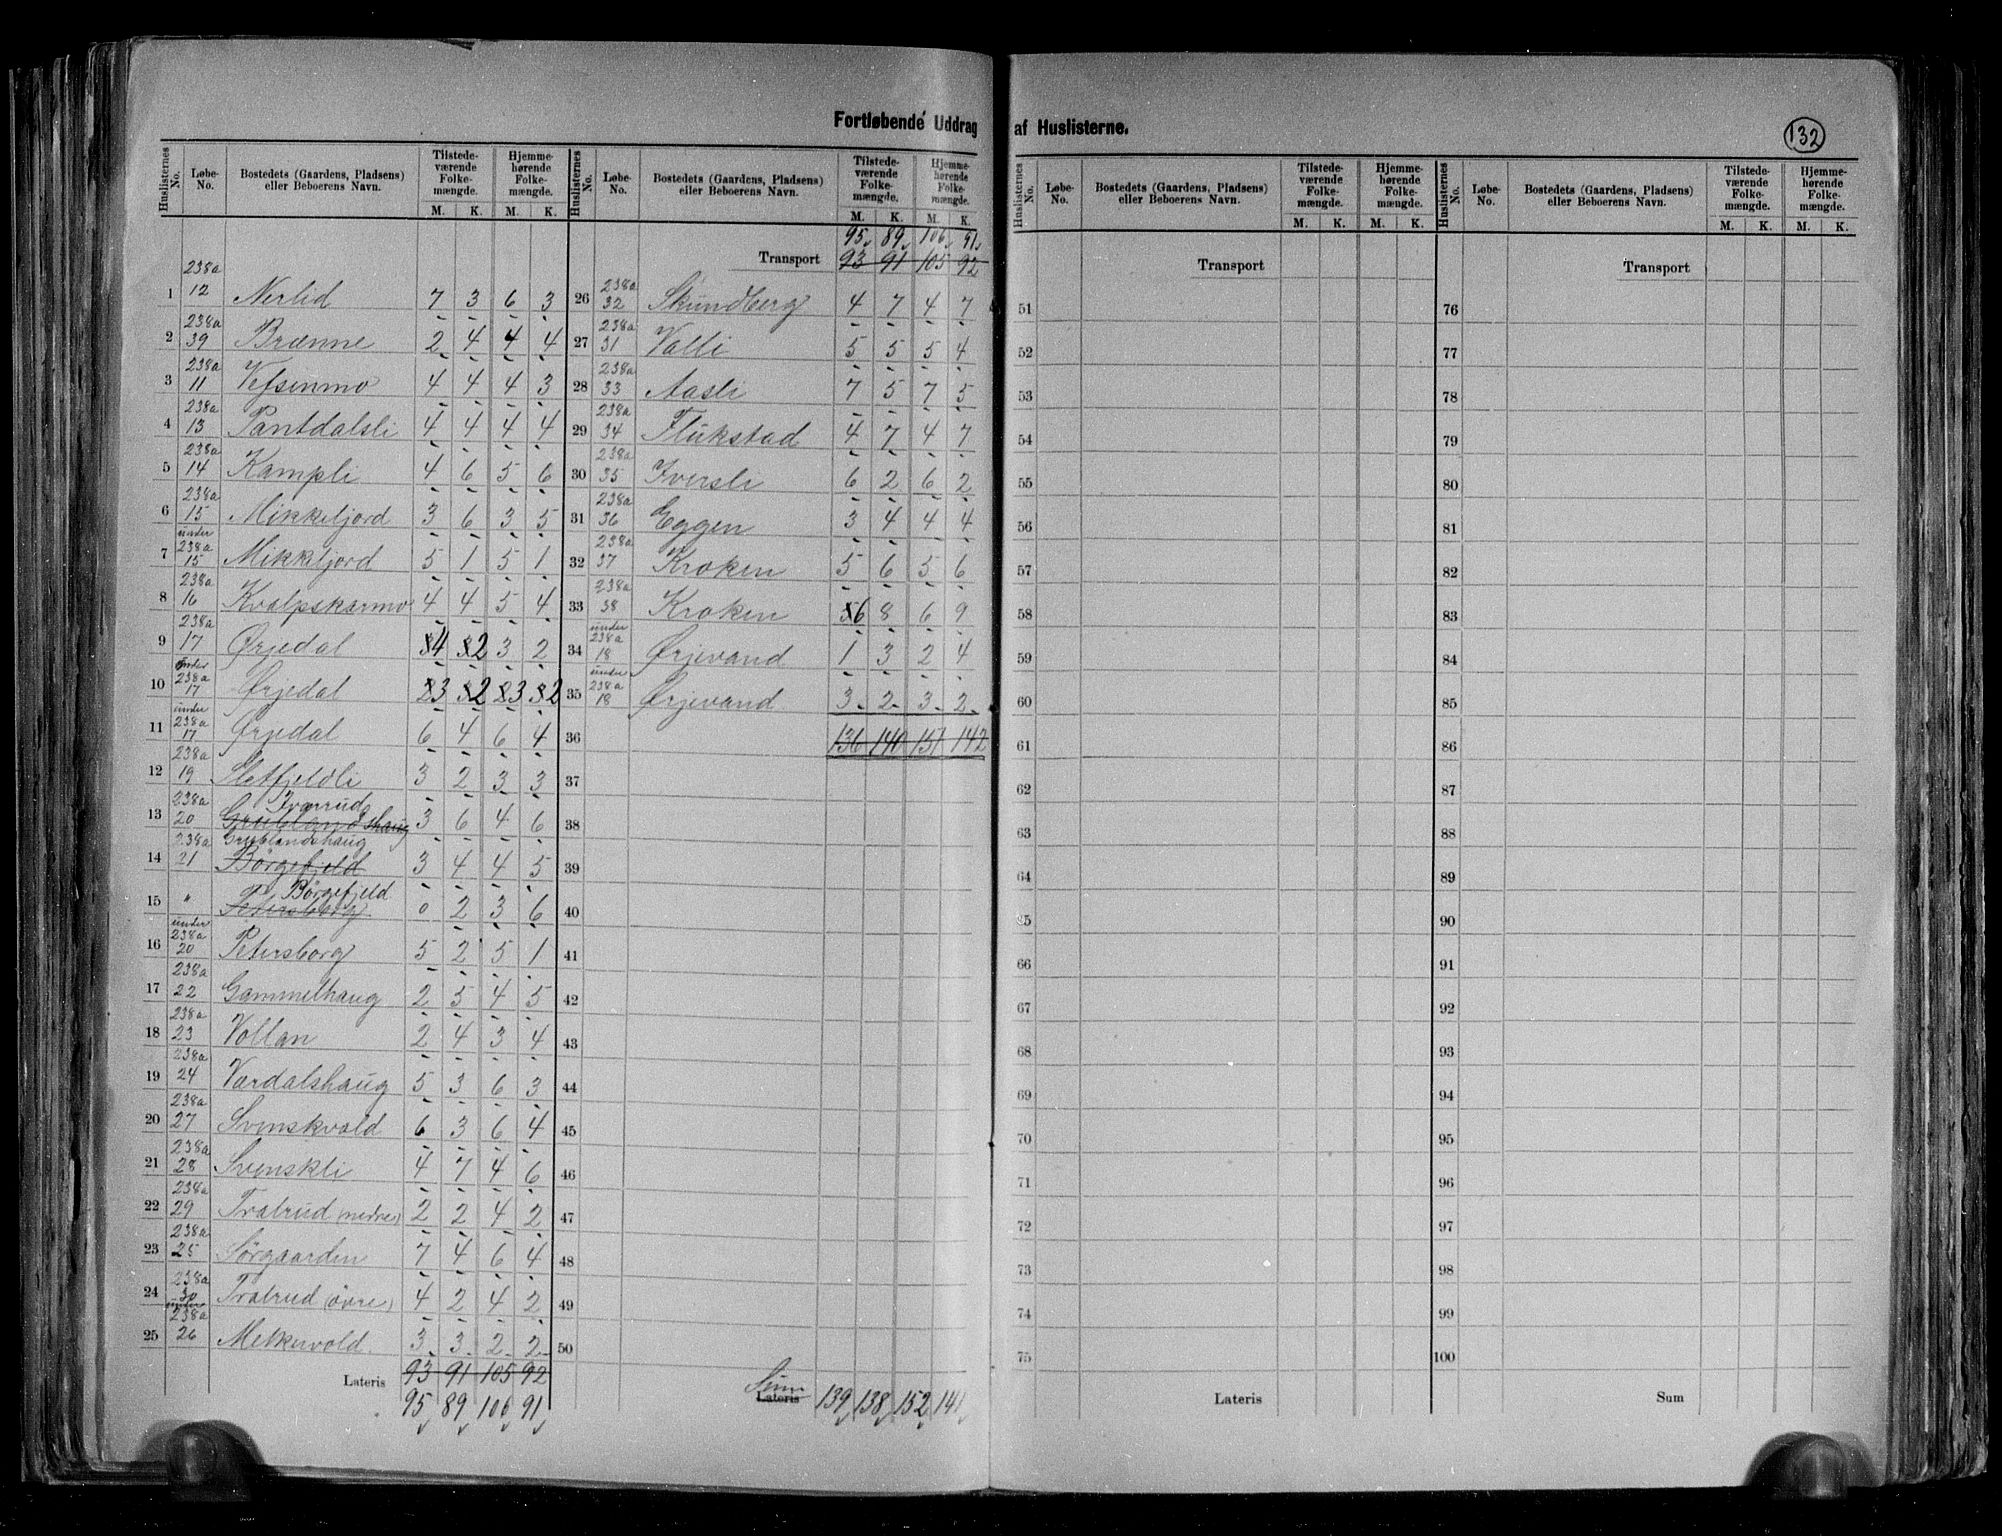 Fortløbende Uddrag af Huslisterne.
132
Huslisternes No. Løbe-No. Bostedets (Gaardens, Pladsens) eller Beboerens Navn. Tilstedeværende Folkemængde. M. K. Hjemmehørende Folkemængde. M. K.
1 238a 12 Nerlid 7 3 6 3
2 238a 39 Brænne 2 4 4 4
3 238a 11 Vefsenmo 4 4 4 3
4 238a 13 Pantdalsli 4 4 4 4
5 238a 14 Kampli 4 6 5 6
6 238a 15 Mikkeljord 3 6 3 5
7 under 238a 15 Mikkeljord 5 1 5 1
8 238a 16 Kvalpskarmo 4 4 5 4
9 238a 17 Ørjedal 4 2 3 2
10 under 238a 17 Ørjedal 3 2 3 2
11 under 238a 17 Ørjedal 6 4 6 4
12 238a 19 Sletfjeldli 3 2 3 3
13 238a 20 Grublandshaug Ivarrud 3 6 4 6
14 238a 21 Børgefjeld Grublandshaug 3 4 4 5
15 " Petersborg Børgefjeld 0 2 3 6
16 under 238a 20 Petersborg 5 2 5 1
17 238a 22 Gammelhaug 2 5 4 5
18 238a 23 Vollan 2 4 3 4
19 238a 24 Værdalshaug 5 3 6 3
20 238a 27 Svenskvold 6 3 6 4
21 238a 28 Svenskli 4 7 4 6
22 238a 29 Tralrud (nedre) 2 2 4 2
23 238a 25 Sørgaarden 7 4 6 4
24 238a 30 Tralrud (øvre) 4 2 4 2
25 under 238a 26 Mekkervold 3 3 2 2
Lateris 93 91 105 92
95 89 106 91
Huslisternes No. Løbe-No. Bostedets (Gaardens, Pladsens) eller Beboerens Navn. Tilstedeværende Folkemængde. M. K. Hjemmehørende Folkemængde. M. K.
95 89 106 91
Transport 93 91 105 92
26 238a 32 Skundberg 4 7 4 7
27 238a 31 Valli 5 5 5 4
28 238a 33 Aasli 7 5 7 5
29 238a 34 Flukstad 4 7 4 7
30 238a 35 Iversli 6 2 6 2
31 238a 36 Eggen 3 4 4 4
32 238a 37 Kroken 5 6 5 6
33 238a 38 Kroken 6 8 6 9
34 under 238a 18 Ørjevand 1 3 2 4
35 under 238a 18 Ørjevand 3 2 3 2
36 136 140 151 142
37
38
39
40
41
42
43
44
45
46
47
48
49
50
Lateris Sum 139 138 152 141
Huslisternes No. Løbe-No. Bostedets (Gaardens, Pladsens) eller Beboerens Navn. Tilstedeværende Folkemængde. M. K. Hjemmehørende Folkemængde. M. K.
Transport
51
52
53
54
55
56
57
58
59
60
61
62
63
64
65
66
67
68
69
70
71
72
73
74
75
Lateris
Huslisternes No. Løbe-No. Bostedets (Gaardens, Pladsens) eller Beboerens Navn. Tilstedeværende Folkemængde. M. K. Hjemmehørende Folkemængde. M. K.
Transport
76
77
78
79
80
81
82
83
84
85
86
87
88
89
90
91
92
93
94
95
96
97
98
99
100
Sum